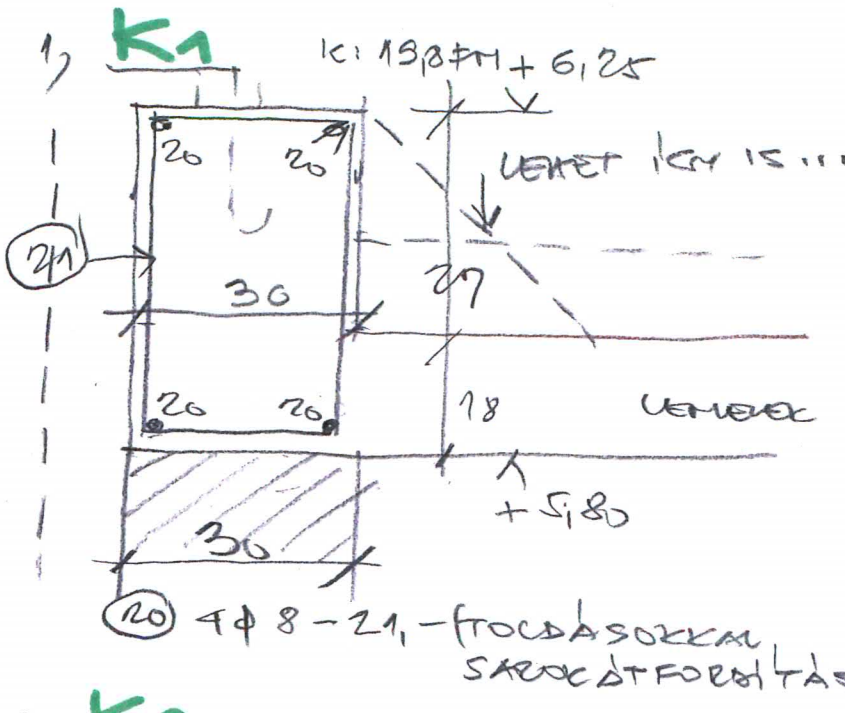 1,) K1
K: 19,8 FM + 6,25
20 20
LEHET ÍGY IS...
21
30
27
20 20
18
+ 5,80
30
20 4ϕ8 - 21,- TOLDÁSOKKAL,
SAROKÁTFORDÍTÁS